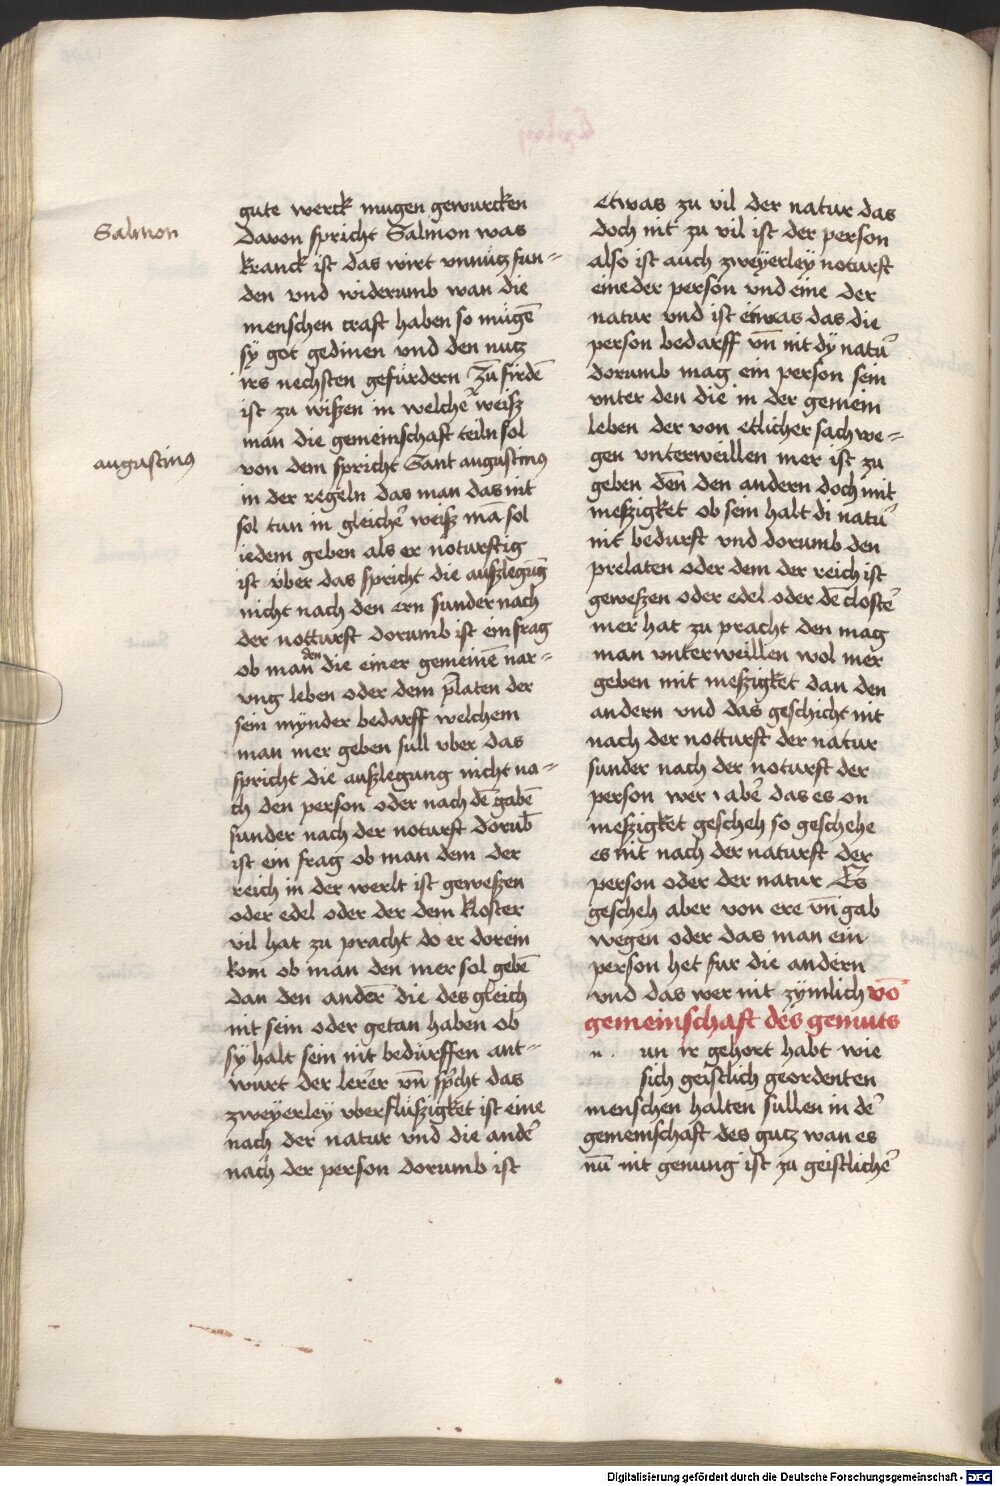 Salmon
augustinus
gute werck mugen gewurcken
Davon spricht Salmon was
kranck ist das wirt vnnütz fun=
den vnd widerumb wan die
menschen craft haben so mügē
sÿ got gedinen vnd den nutz
irs nechsten gefürdern Zū firdē
ist zu wiszen in welcher weisz
man die gemeinschaft teiln sol
von dem spricht Sant augustinus
in der regeln das man das nit
sol tun in gleicher weisz mā sol
iedem geben als er noturftig
ist über das spricht die auszlegūg
nicht nach den ern sunder nach
der notturft dorumb ist ein frag
ob man den die einer gemeinē nar=
ung leben oder dem p̄laten der
sein mÿnder bedarff welchem
man mer geben sull vber das
spricht die auszlegung nicht na=
ch den person oder nach dē gabē
sunder nach der noturft dorub̄
ist ein frag ob man dem der
reich in der werlt ist geweszen
oder edel oder der dem kloster
vil hat zu pracht do er dorein
kom ob man den mer sol gebē
dan denander̄ die des gleich
nit sein oder getan haben ob
sÿ halt sein nit bedürffen ant=
wurt der lerer vn̄ sp̄cht das
zweÿerleÿ vberflüszigket ist eine
nach der natur vnd die ander̄
nach der person dorumb ist
Etwas zu vil der natur das
doch nit zu vil ist der person
also ist auch zweÿerleÿ noturft
eine der person vnd eine der
natur vnd ist etwas das die
person bedarff vn̄ nit dÿ natur̄
dorumb mag ein person sein
vnter den die in der gemein
leben der von etlicher sach we=
gen vnterweillen mer ist zu
geben dēn den andern doch mit
meszigket ob sein halt di natur̄
nit bedurft vnd dorumb den
prelaten oder dem der reich ist
geweszen oder edel oder dē closter̄
mer hat zu pracht den mag
man vnterweillen wol mer
geben mit meszigket dan den
andern vnd das geschicht nit
nach der notturft der natur
sunder nach der noturft der
person wer aber das es on
meszigket gescheh so geschehe
es nit nach der naturft der
person oder der natur Es
gescheh aber von ere vn̄ gab
wegen oder das man ein
person het fur die andern
vnd das wer nit zÿmlich vō
gemeinschaft des gemuts
n. un ir gehort habt wie
sich geistlich geordenten
menschen halten sullen in der̄
gemeinschaft des gutz wan es
nū nit genung ist zu geistlicher̄
Digitalisierung gefördert durch die Deutsche Forschungsgemeinschaft - DFG